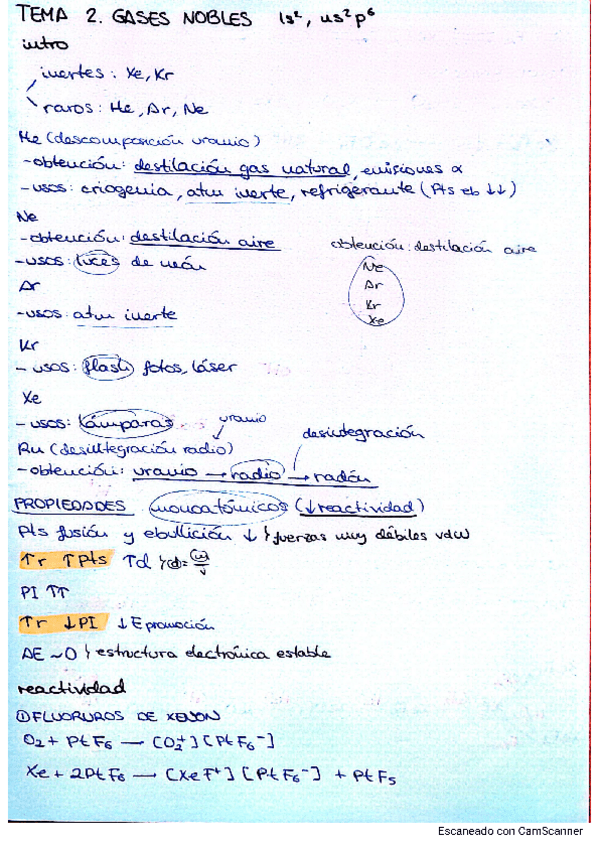 TEMA 2. GASES NOBLES 1s², ns²p⁶
intro
inertes: Xe, Kr
raros: He, Ar, Ne
He (descomposición uranio)
-obtención: destilación gas natural, emisiones α
-usos: criogenia, atm inerte, refrigerante (Pts eb ↓↓)
Ne
-obtención: destilación aire
-usos: luces de neón
obtención: destilación aire
Ne
Ar
Kr
Xe
Ar
-usos: atm inerte
Kr
-usos: flash fotos, láser
Xe
-usos: lámparas
uranio
Rn (desintegración radio)
desintegración
-obtención: uranio → radio → radón
PROPIEDADES monoatómicos (↓reactividad)
Pts fusión y ebullición ↓ fuerzas muy débiles vdW
↑r ↑Pts ↑d d=m/v
PI ↑↑
↑r ↓PI ↓E promoción
AE ~0 estructura electrónica estable
reactividad
① FLUORUROS DE XENON
O₂ + PtF₆ → [O₂⁺][PtF₆⁻]
Xe + 2PtF₆ → [XeF⁺][PtF₆⁻] + PtF₅
Escaneado con CamScanner